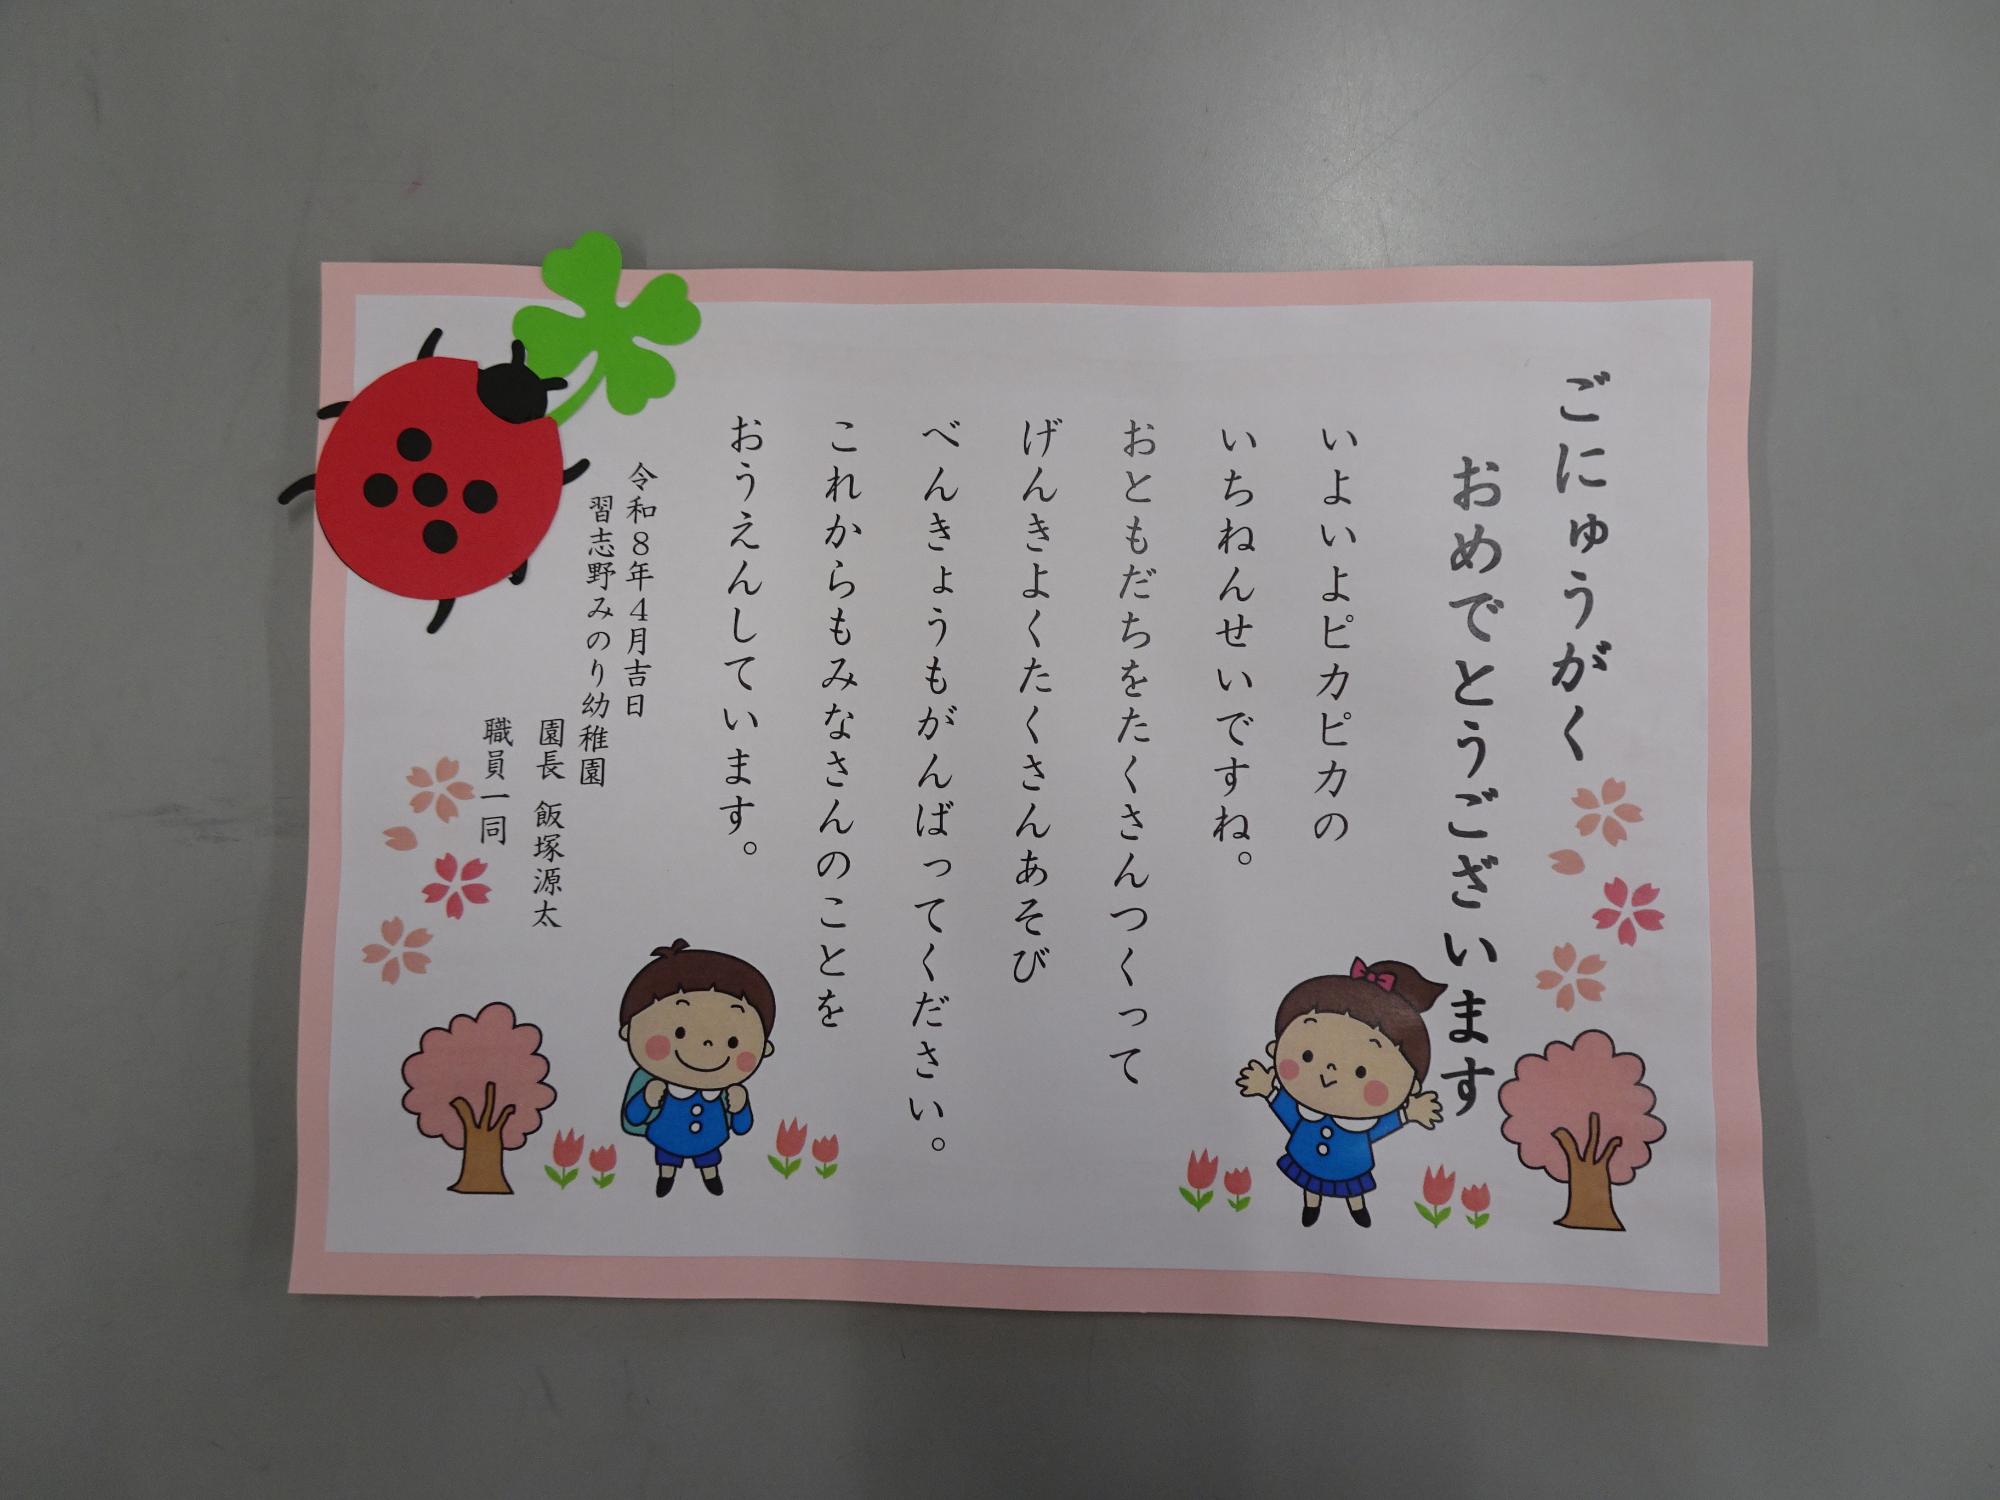 ごにゅうがく
おめでとうございます
いよいよピカピカの
いちねんせいですね。
おともだちをたくさんつくって
げんきよくたくさんあそび
べんきょうもがんばってください。
これからもみなさんのことを
おうえんしています。
令和8年4月吉日
習志野みのり幼稚園
園長 飯塚源太
職員一同